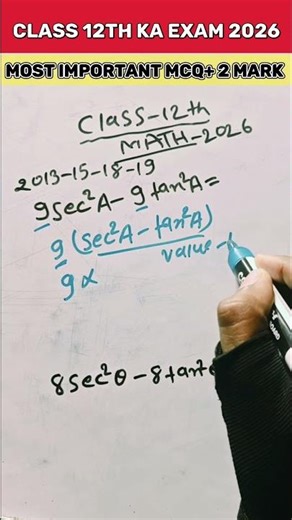 CLASS 12TH KA EXAM 2026
MOST IMPORTANT MCQ+ 2 MARK
Class-12th
MATH-2026
2013-15-18-19
9sec²A - 9tan²A=
9 (sec²A - tan²A)
value -
9 ×
8sec²θ - 8tan²